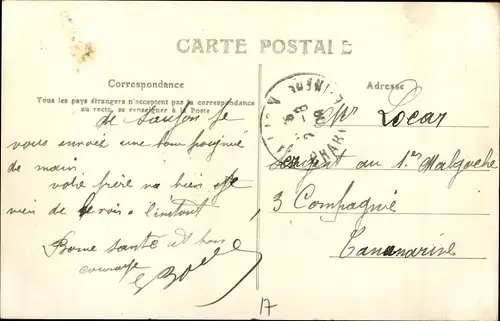 CARTE POSTALE
Correspondance
Tous les pays étrangers n'acceptent pas la correspondance
au recto, se renseigner à la Poste
Adresse
de Saujon je
vous envoie une bonne poignée
de main
votre frère va bien je
vien de le voir a l'instant
Bonne santé et bon
courage
Mr Locar
Sergent au 1er Malgache
3 Compagnie
Tananarive
17